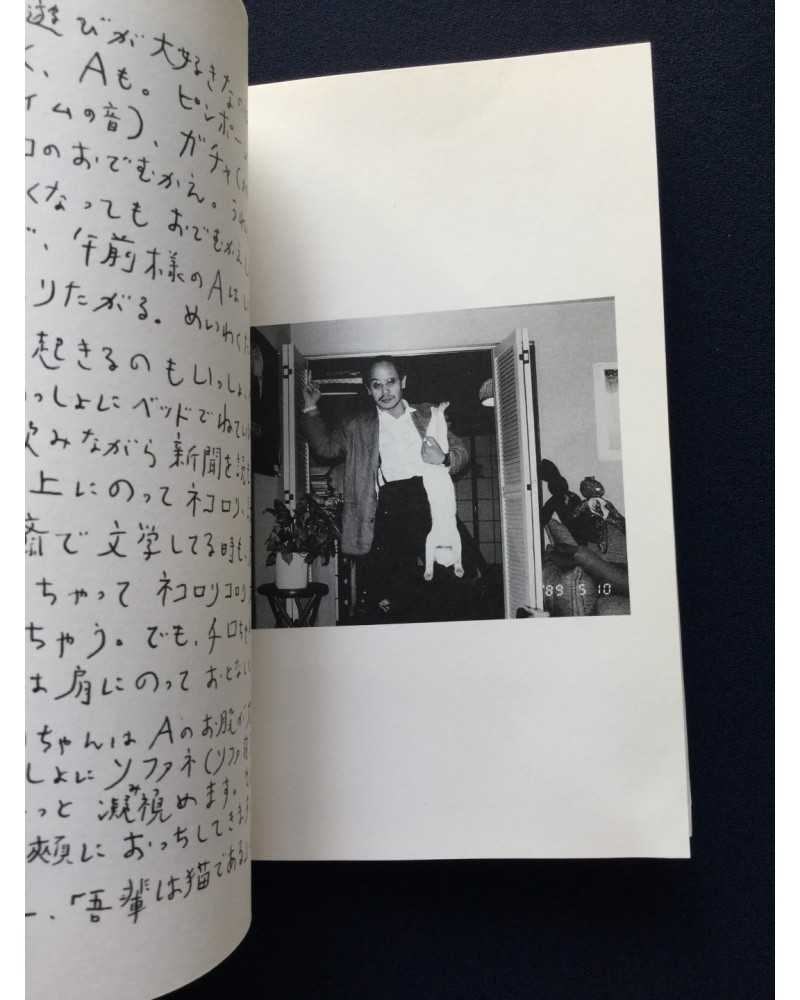 遊びが大好きなの
く、Aも。ピンポー
イムの音)、ガチャ(
ロのおでむかえ。うれ
くなってもおでむかえし
、午前様のAはし
りたがる。めいわくだ
起きるのもいっしょ
っしょにベッドでねてい
飲みながら新聞を読
上にのってネコロリ、
斎で文学してる時も、
ちゃってネコロリコロリ
ちゃう。でも、チロちゃ
は肩にのっておとなし
ちゃんはAのお腹が
しょにソファネ(ソファ
っと凝視めます。
み
頬におっちしてきま
ー、「吾輩は猫である
'89 5 10